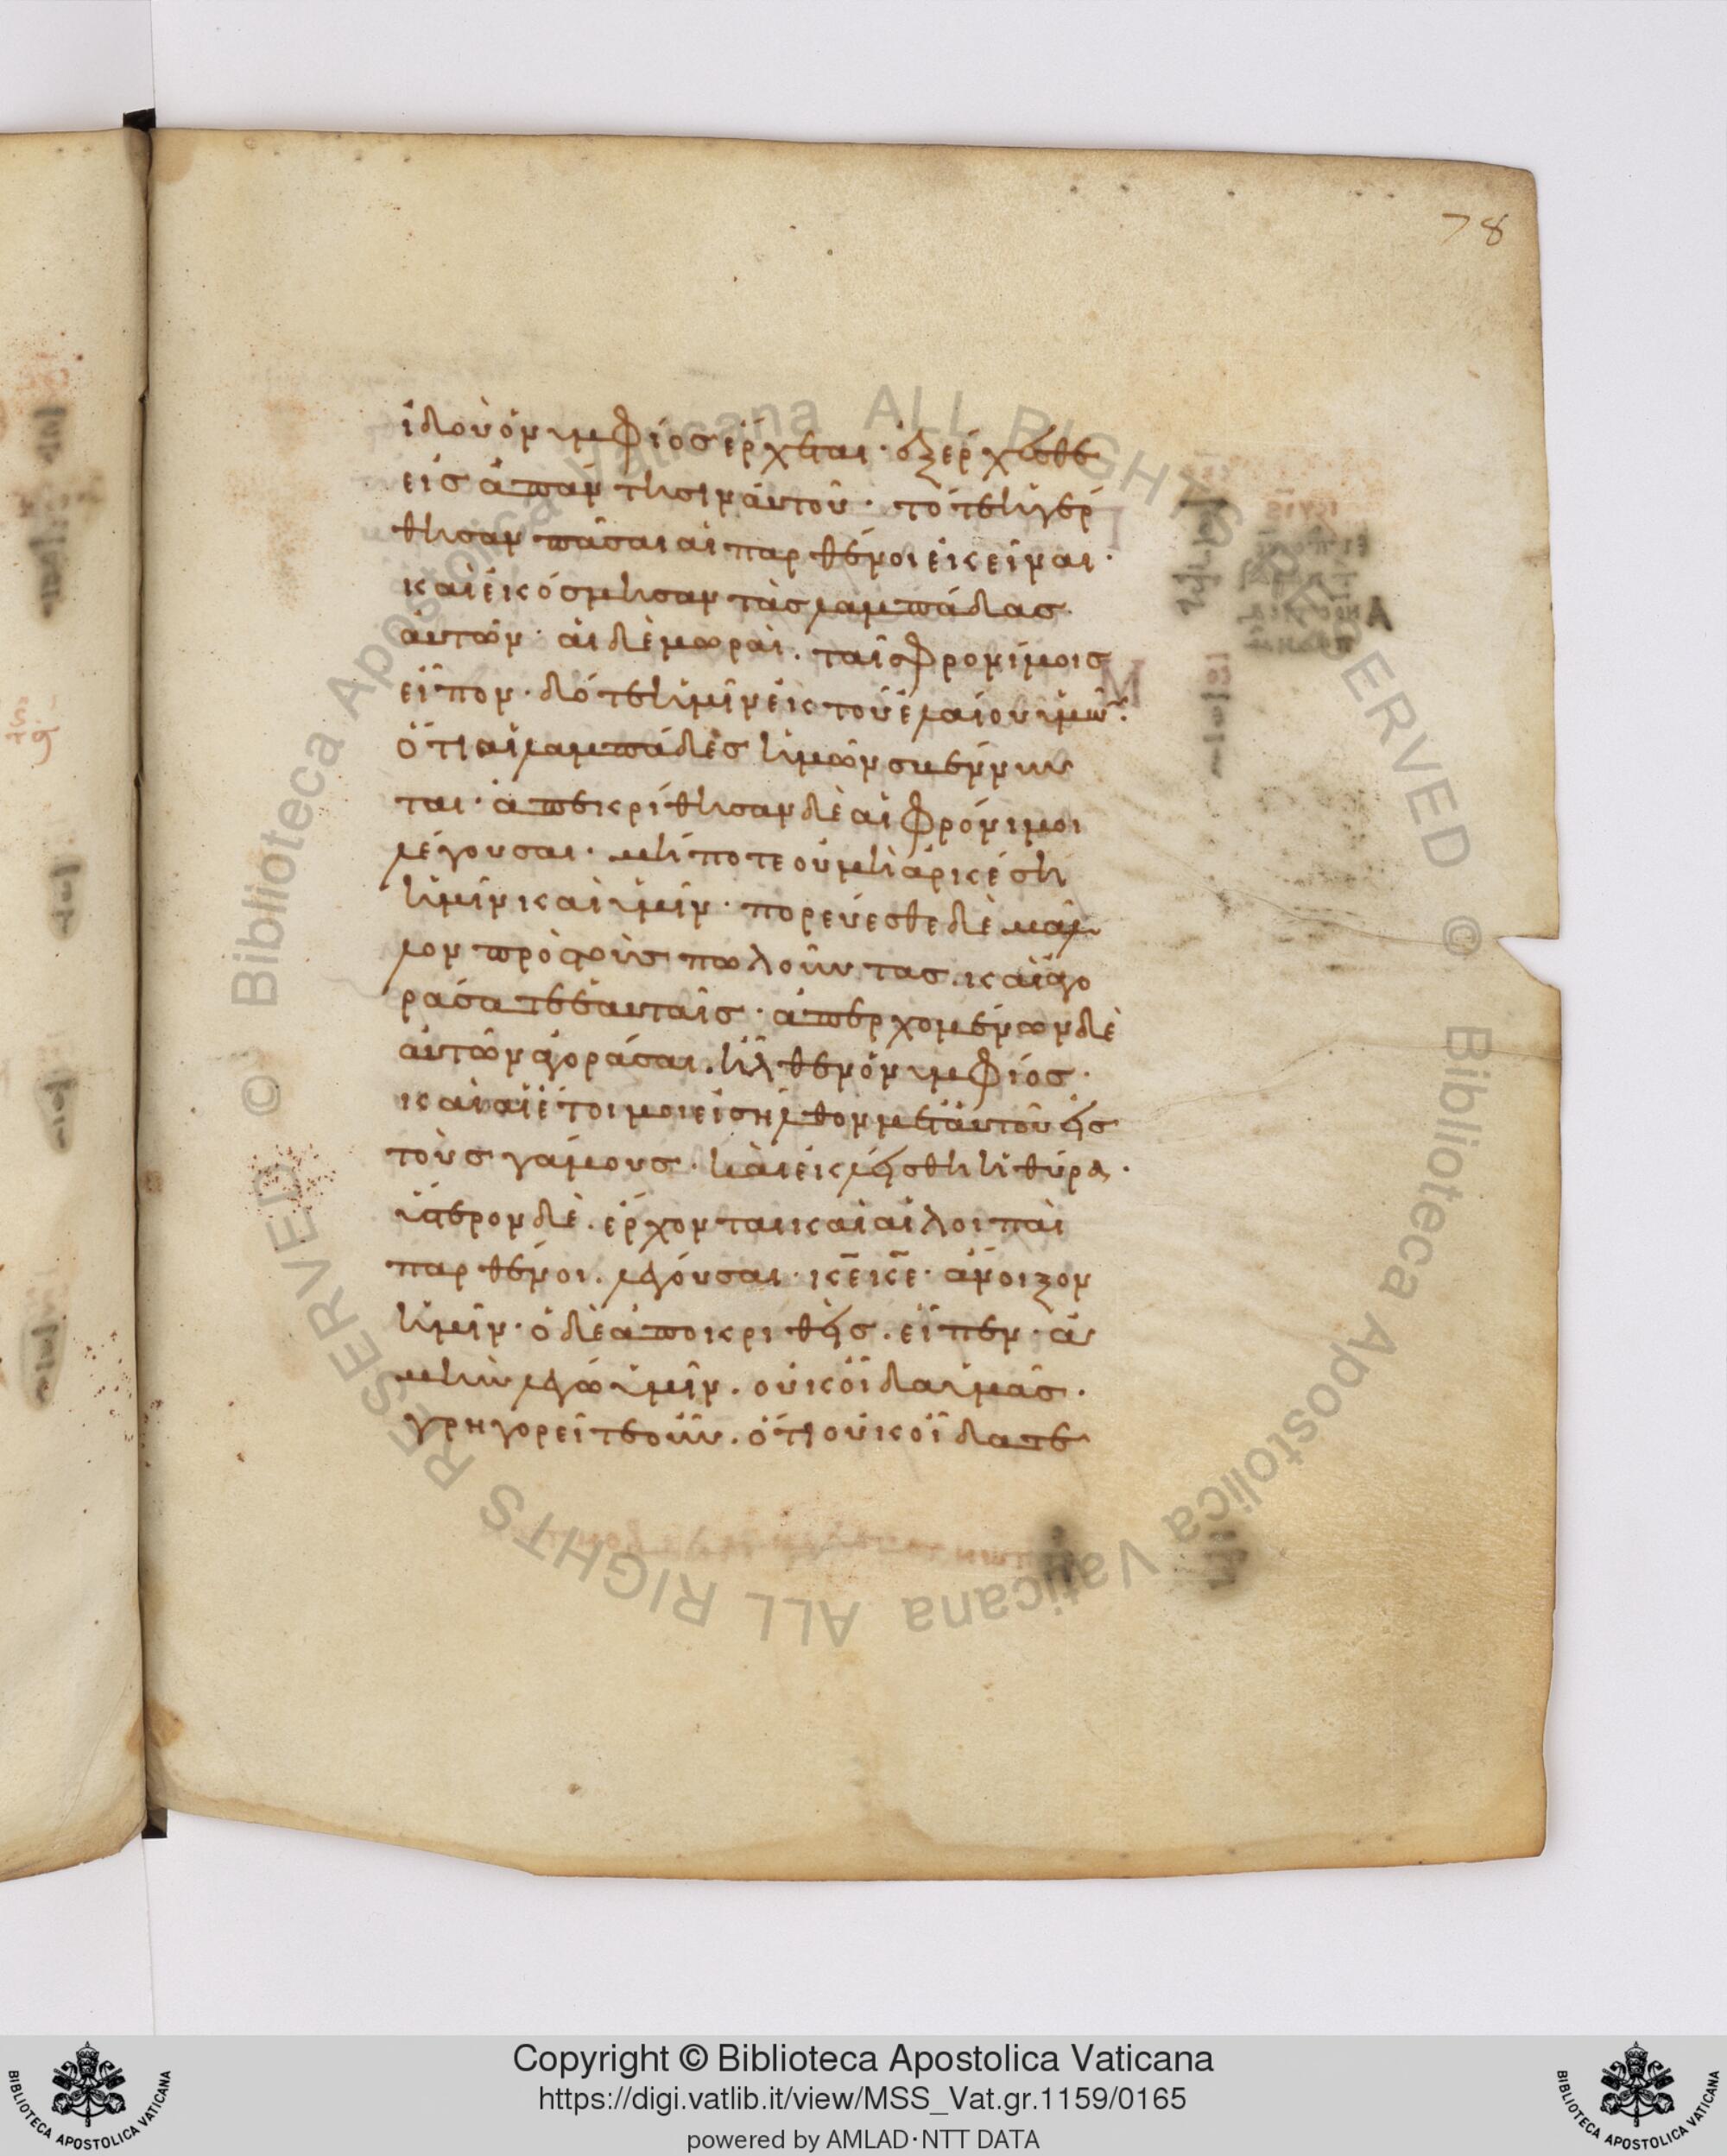 78
ἰδοὺ ὁ νυμφίος ἔρχεται· ἐξέρχεσθε
εἰς ἀπάντησιν αὐτοῦ· τότε ἠγέρ
θησαν πᾶσαι αἱ παρθένοι ἐκεῖναι·
καὶ ἐκόσμησαν τὰς λαμπάδας
αὐτῶν· αἱ δὲ μωραὶ· ταῖς φρονίμοις
εἶπον· δότε ἡμῖν ἐκ τοῦ ἐλαίου ὑμῶ̅·
ὅτι αἱ λαμπάδες ἡμῶν σβέννυν
ται· ἀπεκρίθησαν δὲ αἱ φρόνιμοι
λέγουσαι· μήποτε οὐ μὴ ἀρκέσῃ
ἡμῖν καὶ ὑμῖν· πορεύεσθε δὲ μᾶλ
λον πρὸς τοὺς πωλοῦντας· καὶ ἀγο
ράσατε ἑαυταῖς· ἀπερχομένων δὲ
αὐτῶν ἀγοράσαι· ἦλθεν ὁ νυμφίος·
καὶ αἱ ἕτοιμοι εἰσῆλθον μετ' αὐτοῦ εἰς
τοὺς γάμους· καὶ ἐκλείσθη ἡ θύρα·
ὕστερον δὲ· ἔρχονται καὶ αἱ λοιπαὶ
παρθένοι· λέγουσαι· κ̅ε̅ κ̅ε̅· ἄνοιξον
ἡμῖν· ὁ δὲ ἀποκριθεὶς· εἶπεν· ἀ
μὴν λέγω ὑμῖν· οὐκ οἶδα ὑμᾶς·
γρηγορεῖτε οὖν· ὅτι οὐκ οἴδατε
© Biblioteca Apostolica Vaticana ALL RIGHTS RESERVED © Biblioteca Apostolica Vaticana ALL RIGHTS RESERVED
BIBLIOTECA APOSTOLICA VATICANA
Copyright © Biblioteca Apostolica Vaticana
https://digi.vatlib.it/view/MSS_Vat.gr.1159/0165
powered by AMLAD·NTT DATA
BIBLIOTECA APOSTOLICA VATICANA